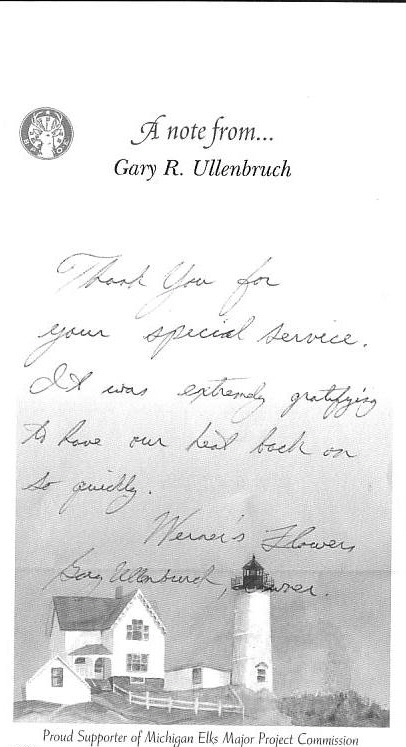 A note from...
Gary R. Ullenbruch
Thank You for
your special service.
It was extremely gratifying
to have our heat back on
so quickly.
Werner's Flowers
Gary Ullenbruch, owner.
Proud Supporter of Michigan Elks Major Project Commission